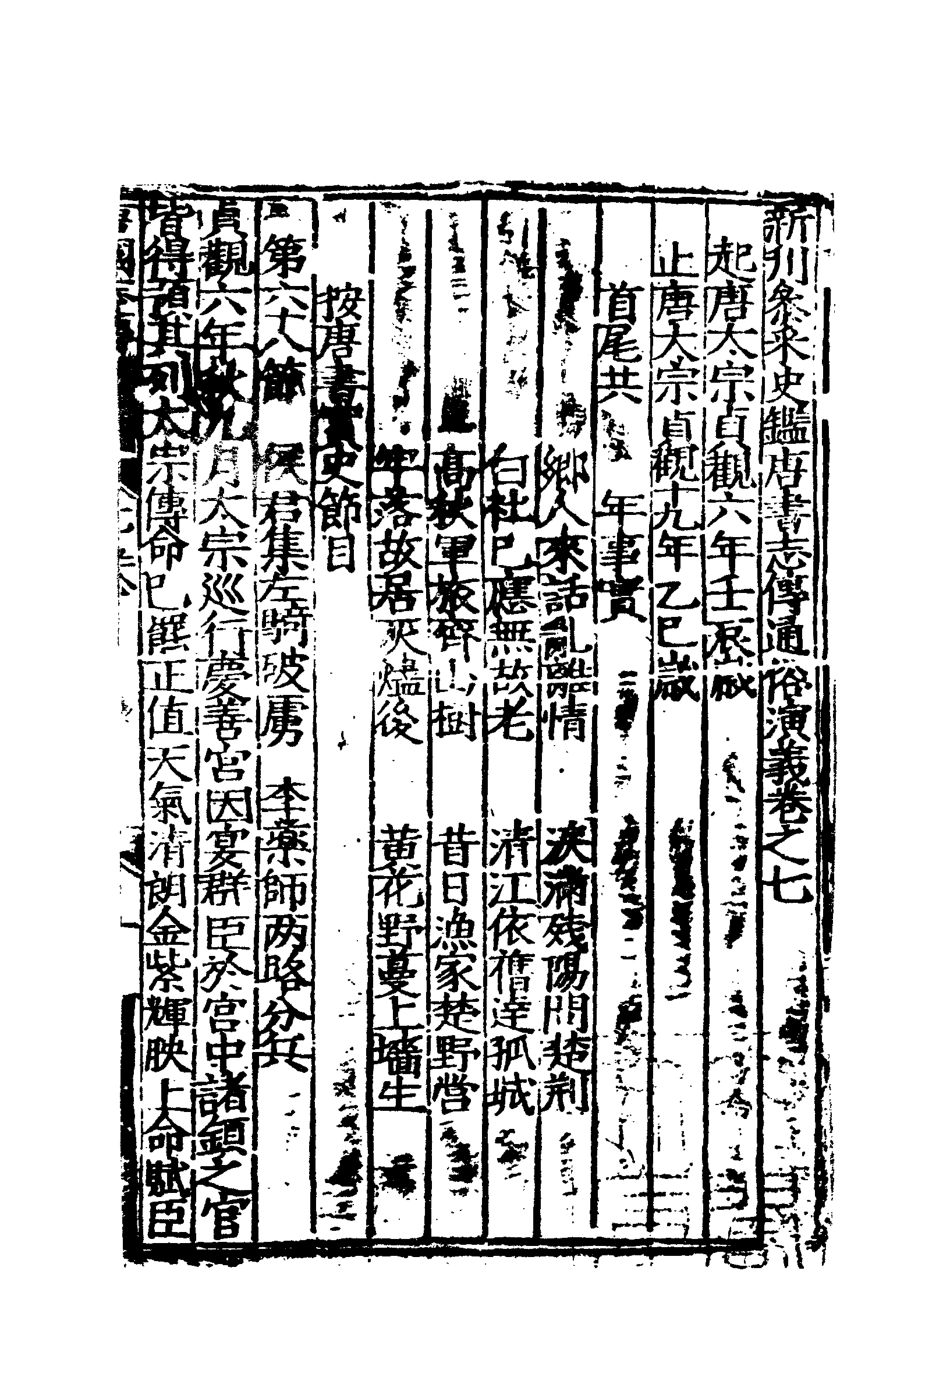 新刋參采史鑑唐書志傳通俗演義卷之七
起唐太宗貞觀六年壬辰歲
止唐太宗貞觀十九年乙巳歲
首尾共 年事實
鄉人來話亂離情 淚滿殘陽問楚荆
白社已應無故老 清江依舊遶孤城
高秋軍旅 山樹 昔日漁家楚野營
牢落故居灰燼後 黃花野蔓上墻生
按唐書實史節目
第六十八節 侯君集左騎破虜 李藥師两路分兵
貞觀六年秋九月太宗巡行慶善宮因宴群臣於宮中諸鎮之官
皆得預其列太宗傳命已饌正值天氣清朗金紫輝映上命賦臣